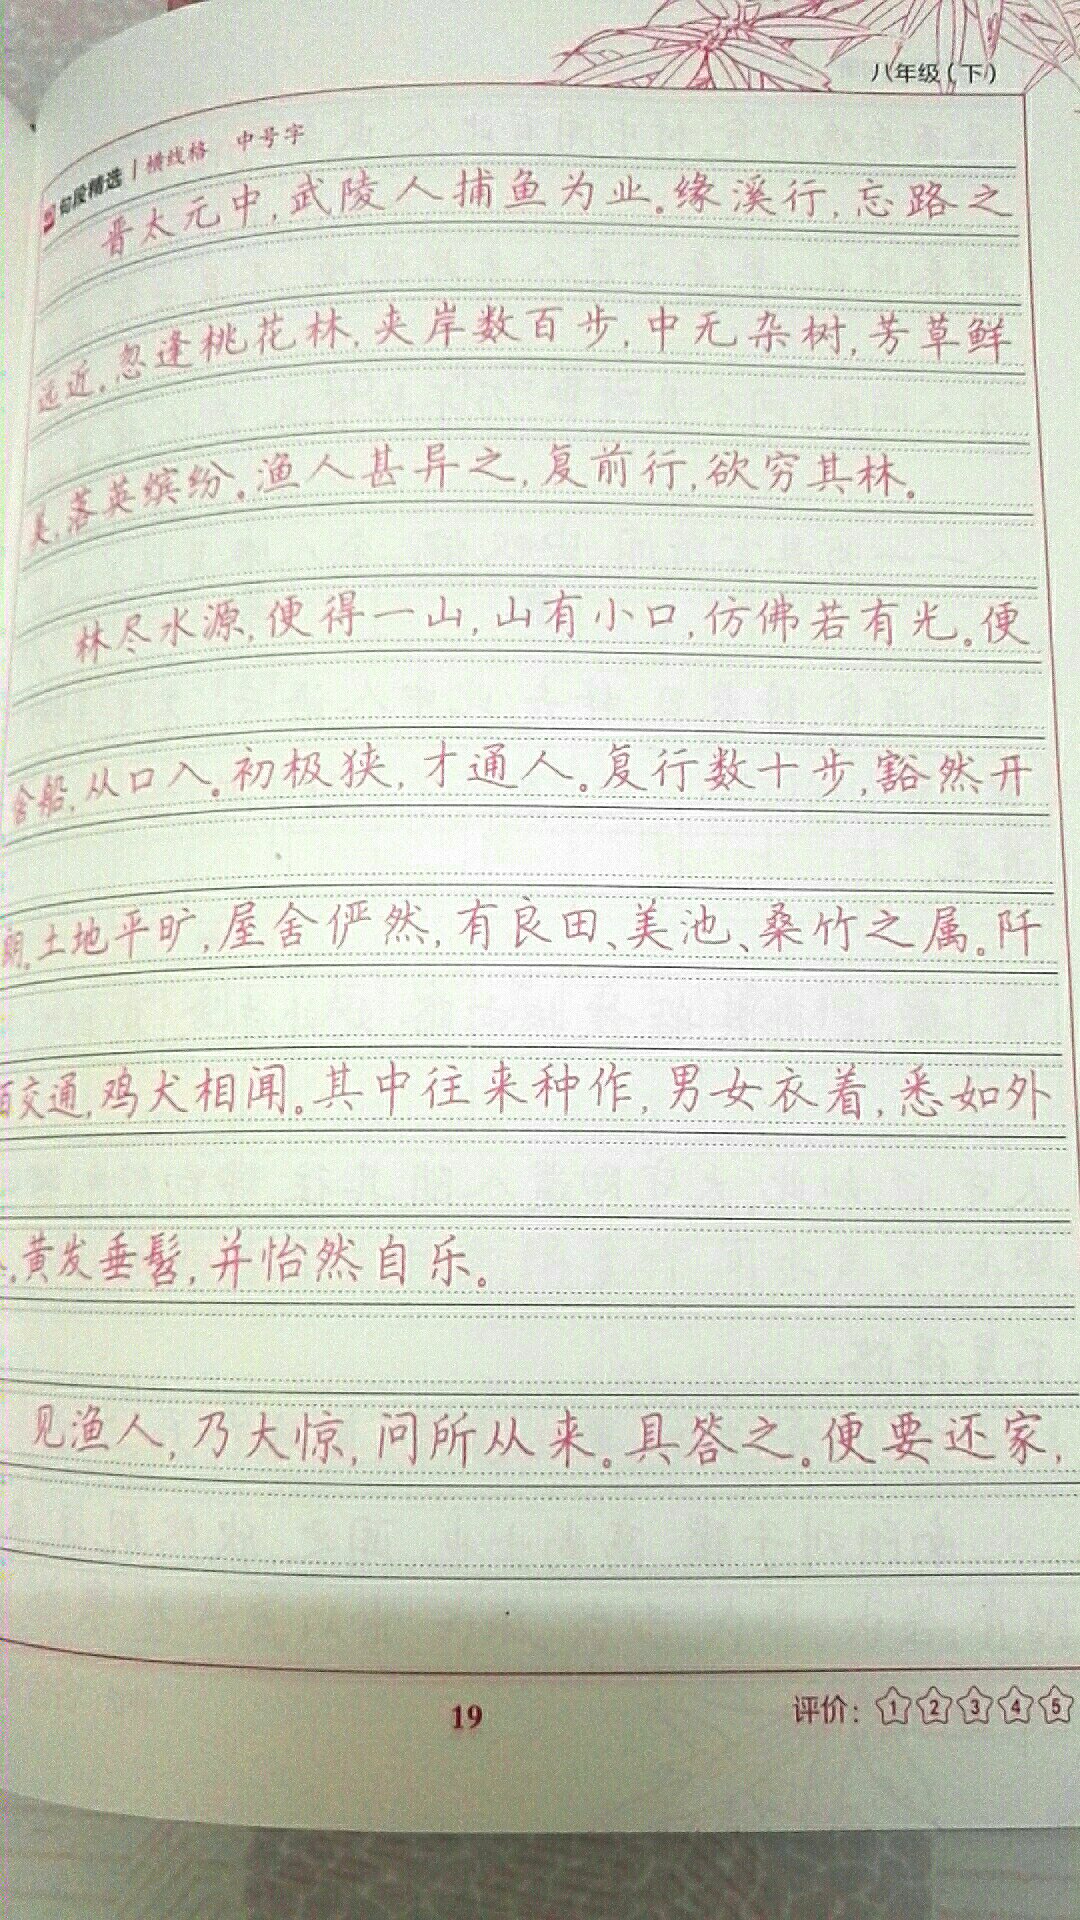 八年级(下)
句段精选 | 横线格 中号字
晋太元中,武陵人捕鱼为业。缘溪行,忘路之
远近。忽逢桃花林,夹岸数百步,中无杂树,芳草鲜
美,落英缤纷。渔人甚异之,复前行,欲穷其林。
林尽水源,便得一山,山有小口,仿佛若有光。便
舍船,从口入。初极狭,才通人。复行数十步,豁然开
朗。土地平旷,屋舍俨然,有良田、美池、桑竹之属。阡
陌交通,鸡犬相闻。其中往来种作,男女衣着,悉如外
。黄发垂髫,并怡然自乐。
见渔人,乃大惊,问所从来。具答之。便要还家,
19
评价: 1 2 3 4 5